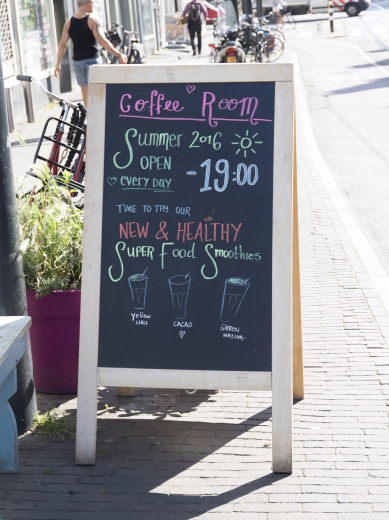 Coffee Room
Summer 2016
OPEN
every day
-19:00
TIME TO TRY OUR
NEW & HEALTHY
SUPER FOOD Smoothies
Yellow
CHILI
CACAO
GREEN
MATCHA